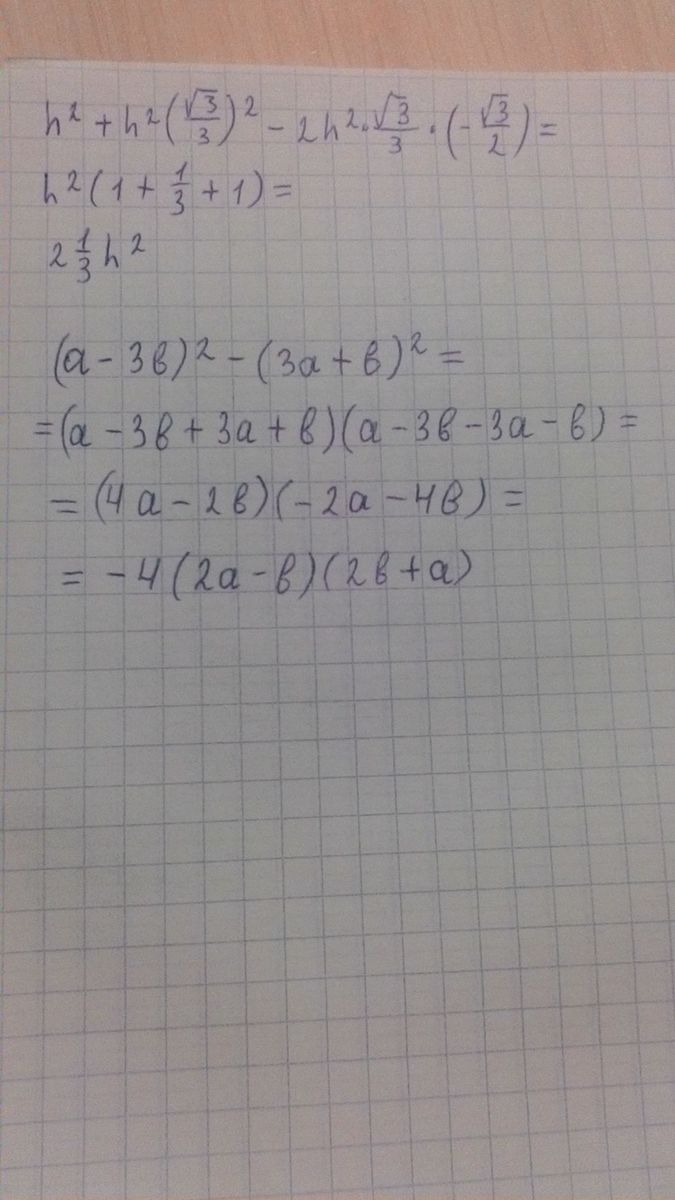 h² + h²(√3/3)² − 2h²·√3/3·(−√3/2) =
h²(1 + 1/3 + 1) =
2 1/3 h²
(a − 3в)² − (3а + в)² =
= (а − 3в + 3а + в)(а − 3в − 3а − в) =
= (4а − 2в)(−2а − 4в) =
= −4(2а − в)(2в + а)